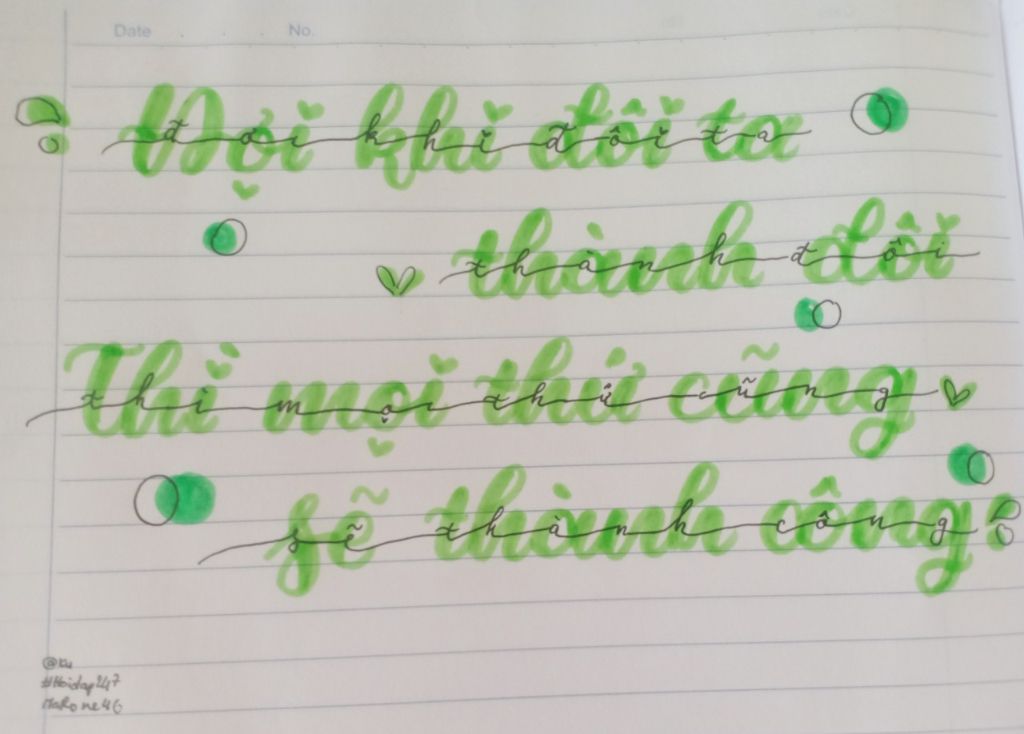 Date . . . No.
"Đợi khi đôi ta
thành đôi
Thì mọi thứ cũng
sẽ thành công"
#Hoidap247